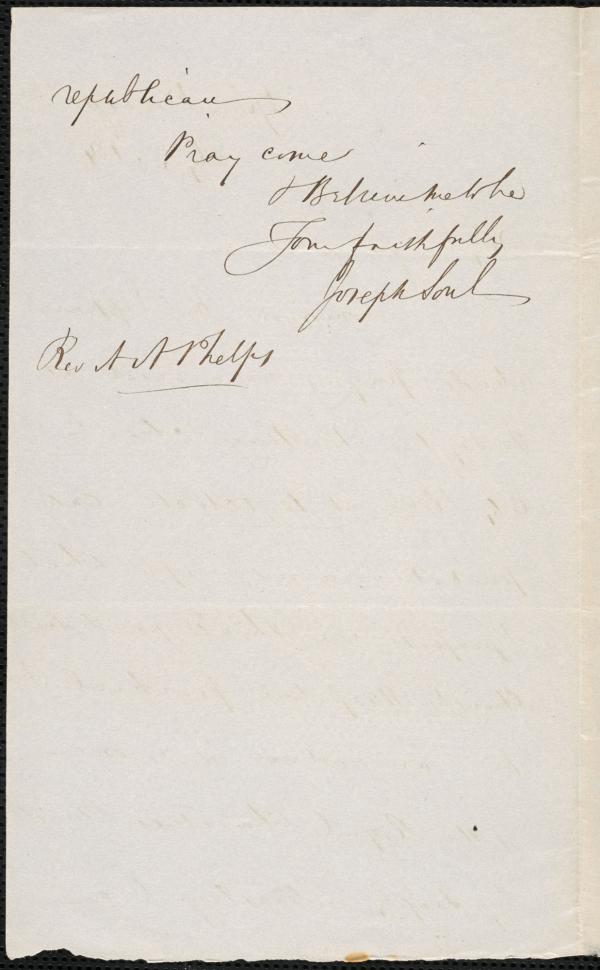 republican
Pray come
& Believe me to be
Your faithfully
Joseph Soul
Rev A A Phelps